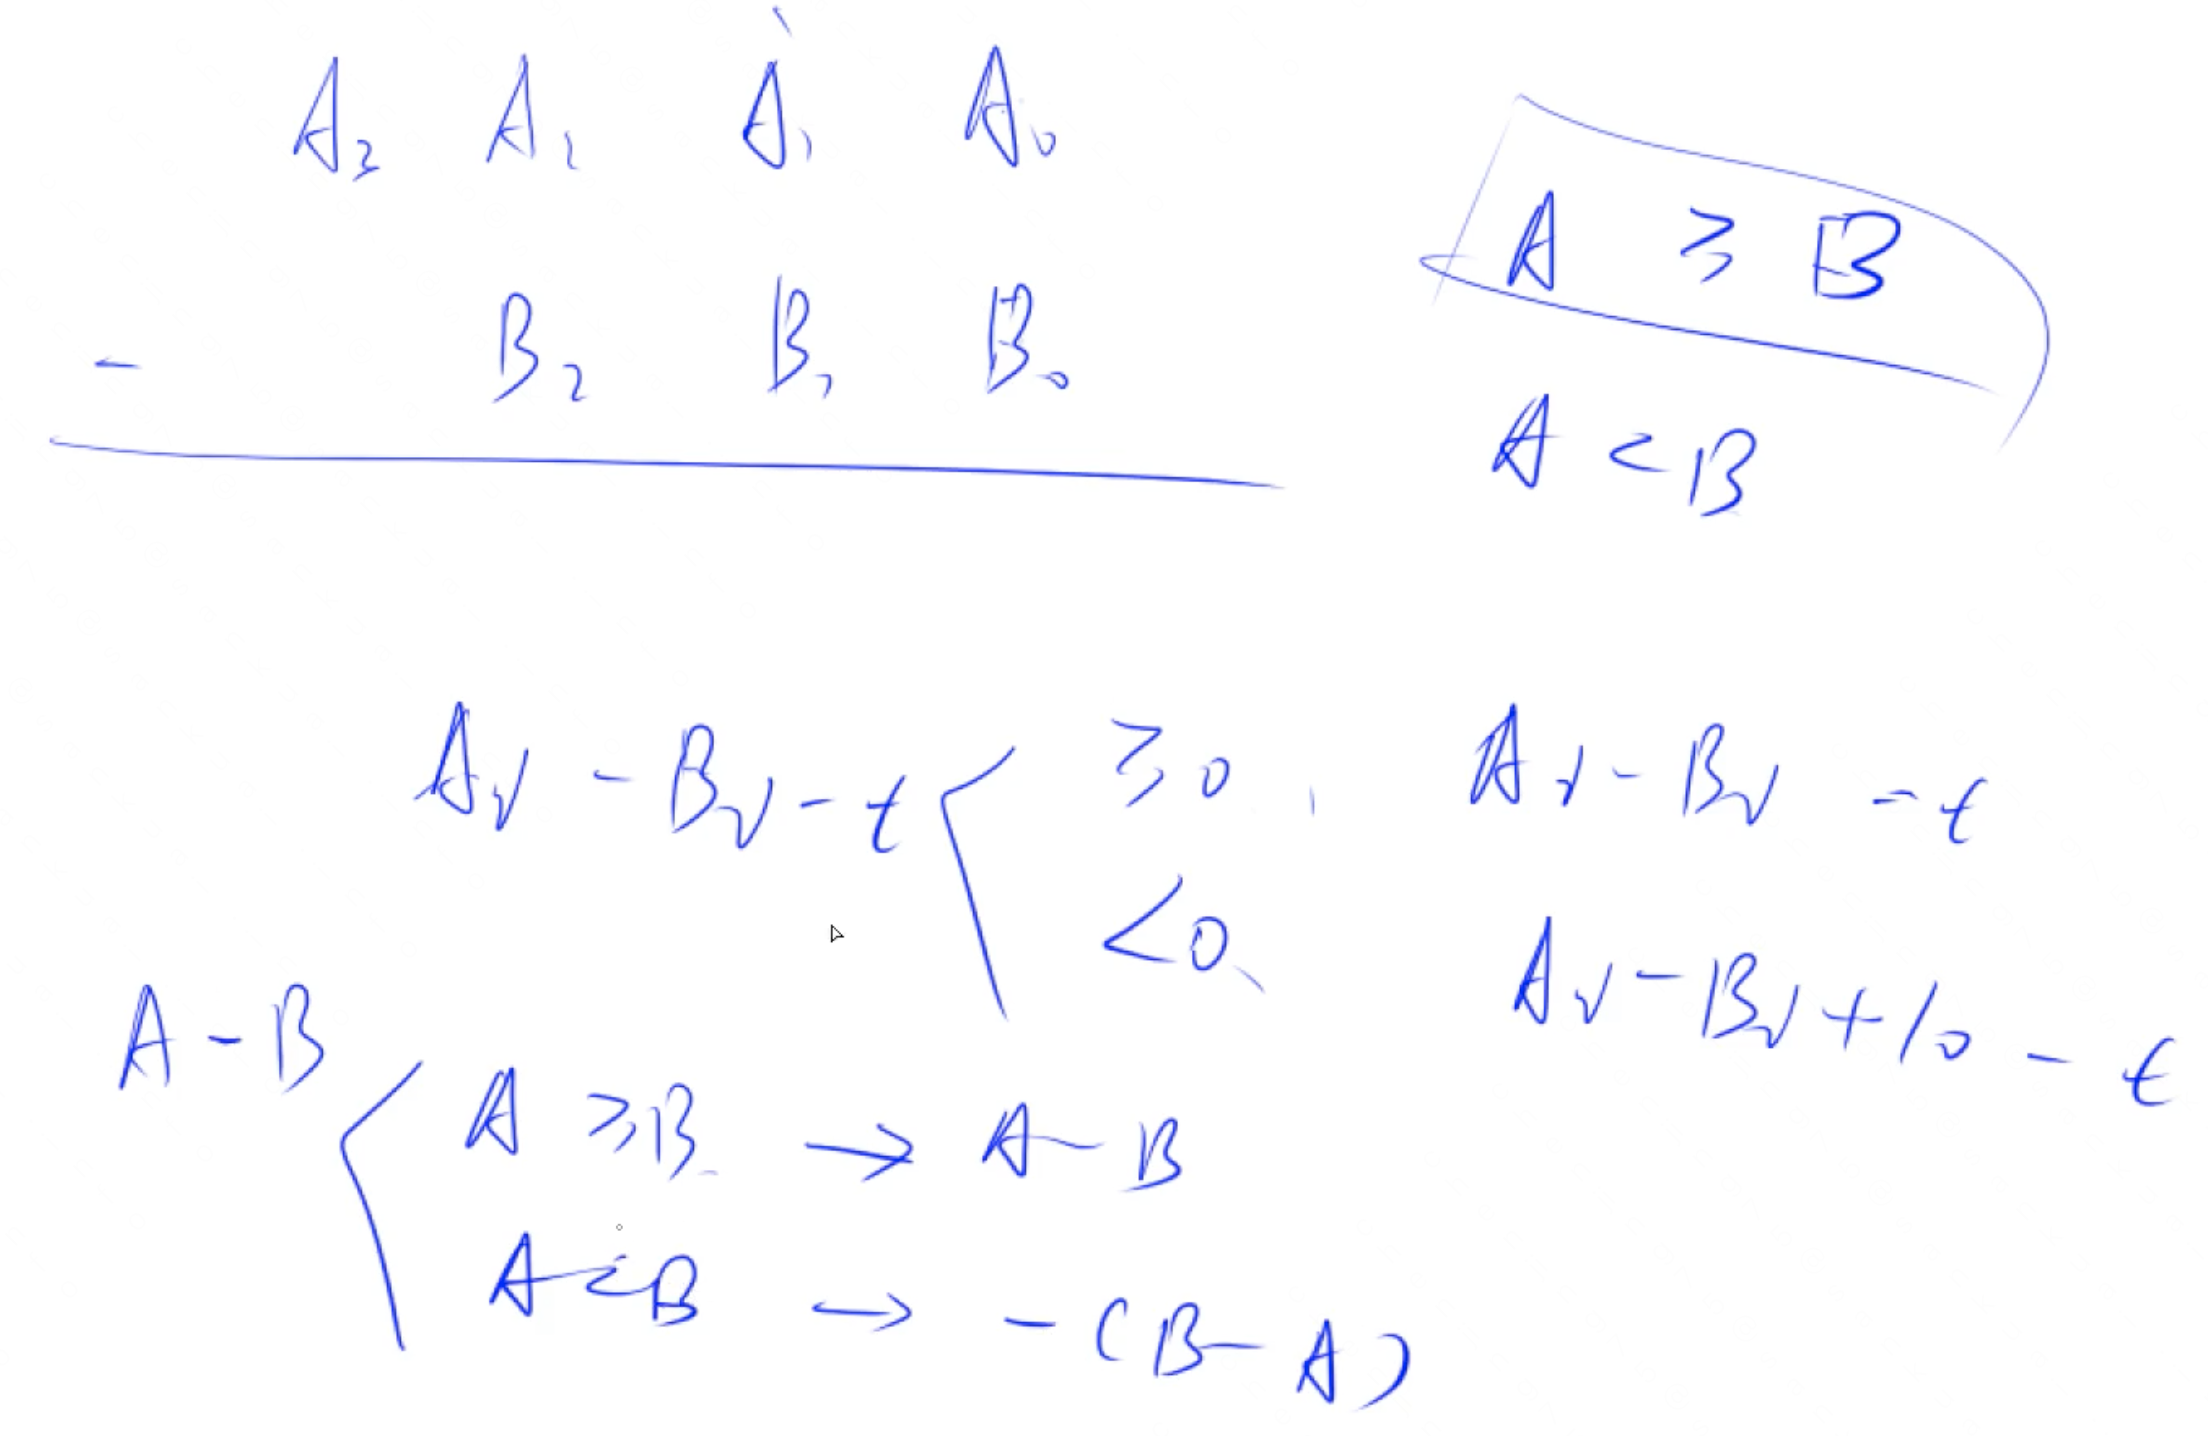 A₃ A₂ A₁ A₀
- B₂ B₁ B₀
A ≥ B
A < B
Aᵢ - Bᵢ - t ≥ 0, Aᵢ - Bᵢ - t
< 0, Aᵢ - Bᵢ + 10 - t
A - B
A ≥ B → A - B
A < B → - (B - A)